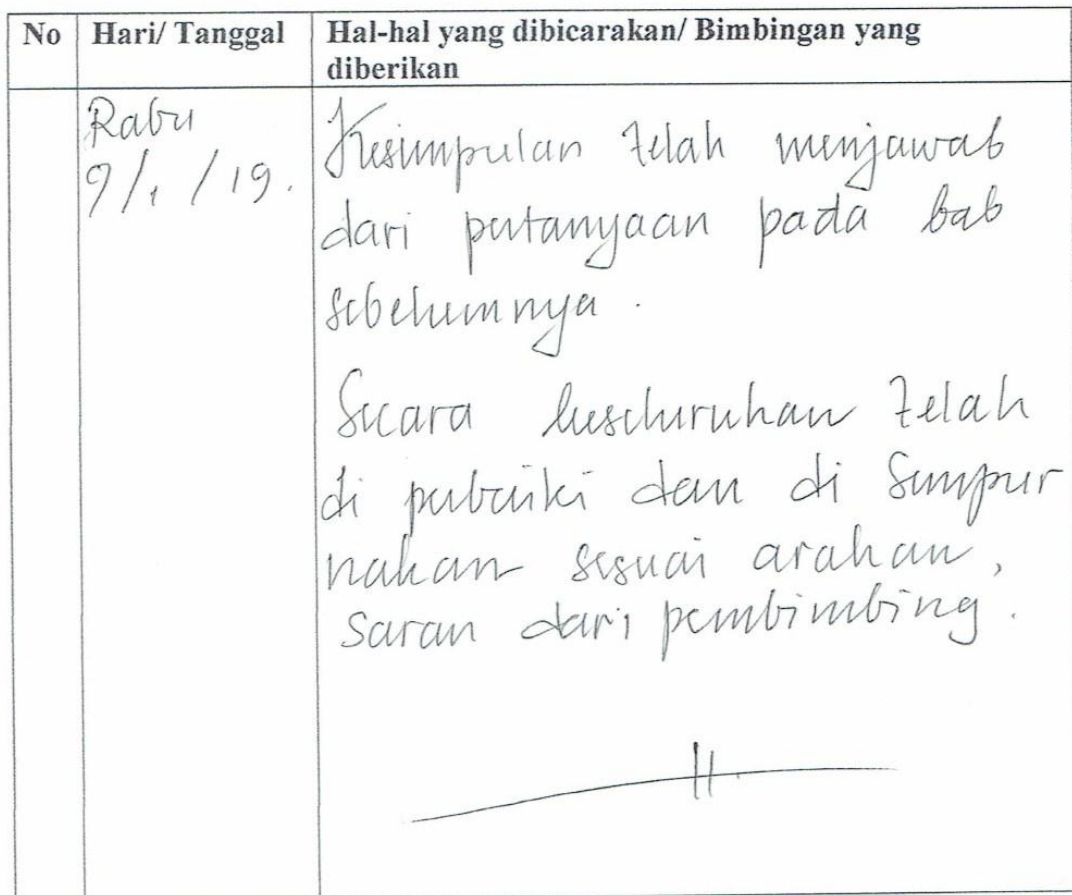 No Hari/ Tanggal Hal-hal yang dibicarakan/ Bimbingan yang
diberikan
Rabu
9/1/19.
Kesimpulan telah menjawab
dari pertanyaan pada bab
sebelumnya.
Secara keseluruhan telah
di perbaiki dan di sempur
nakan sesuai arahan,
saran dari pembimbing.